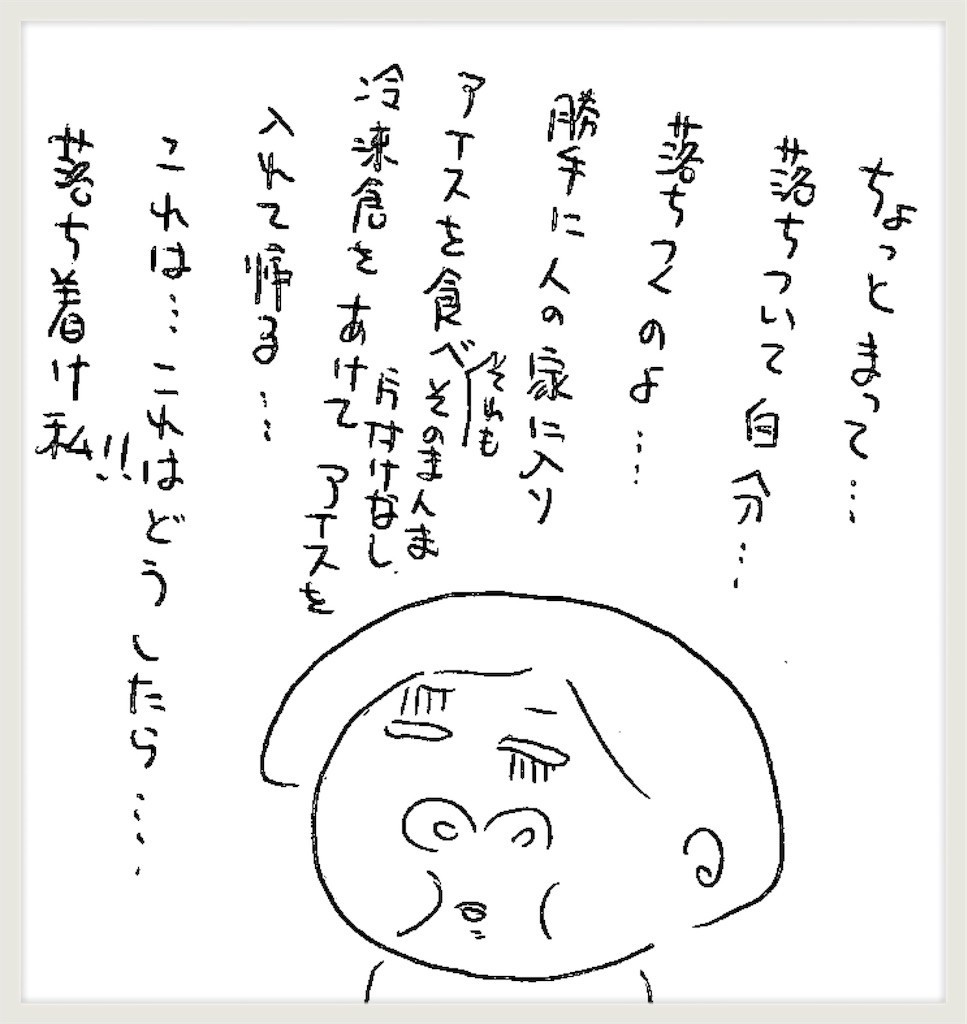 ちょっとまって…
落ちついて自分…
落ちつくのよ……
勝手に人の家に入り
アイスを食べ
それも
そのまんま
片付けなし
冷凍倉をあけて
アイスを
入れて帰る……
これは…これはどうしたら……
落ち着け私!!